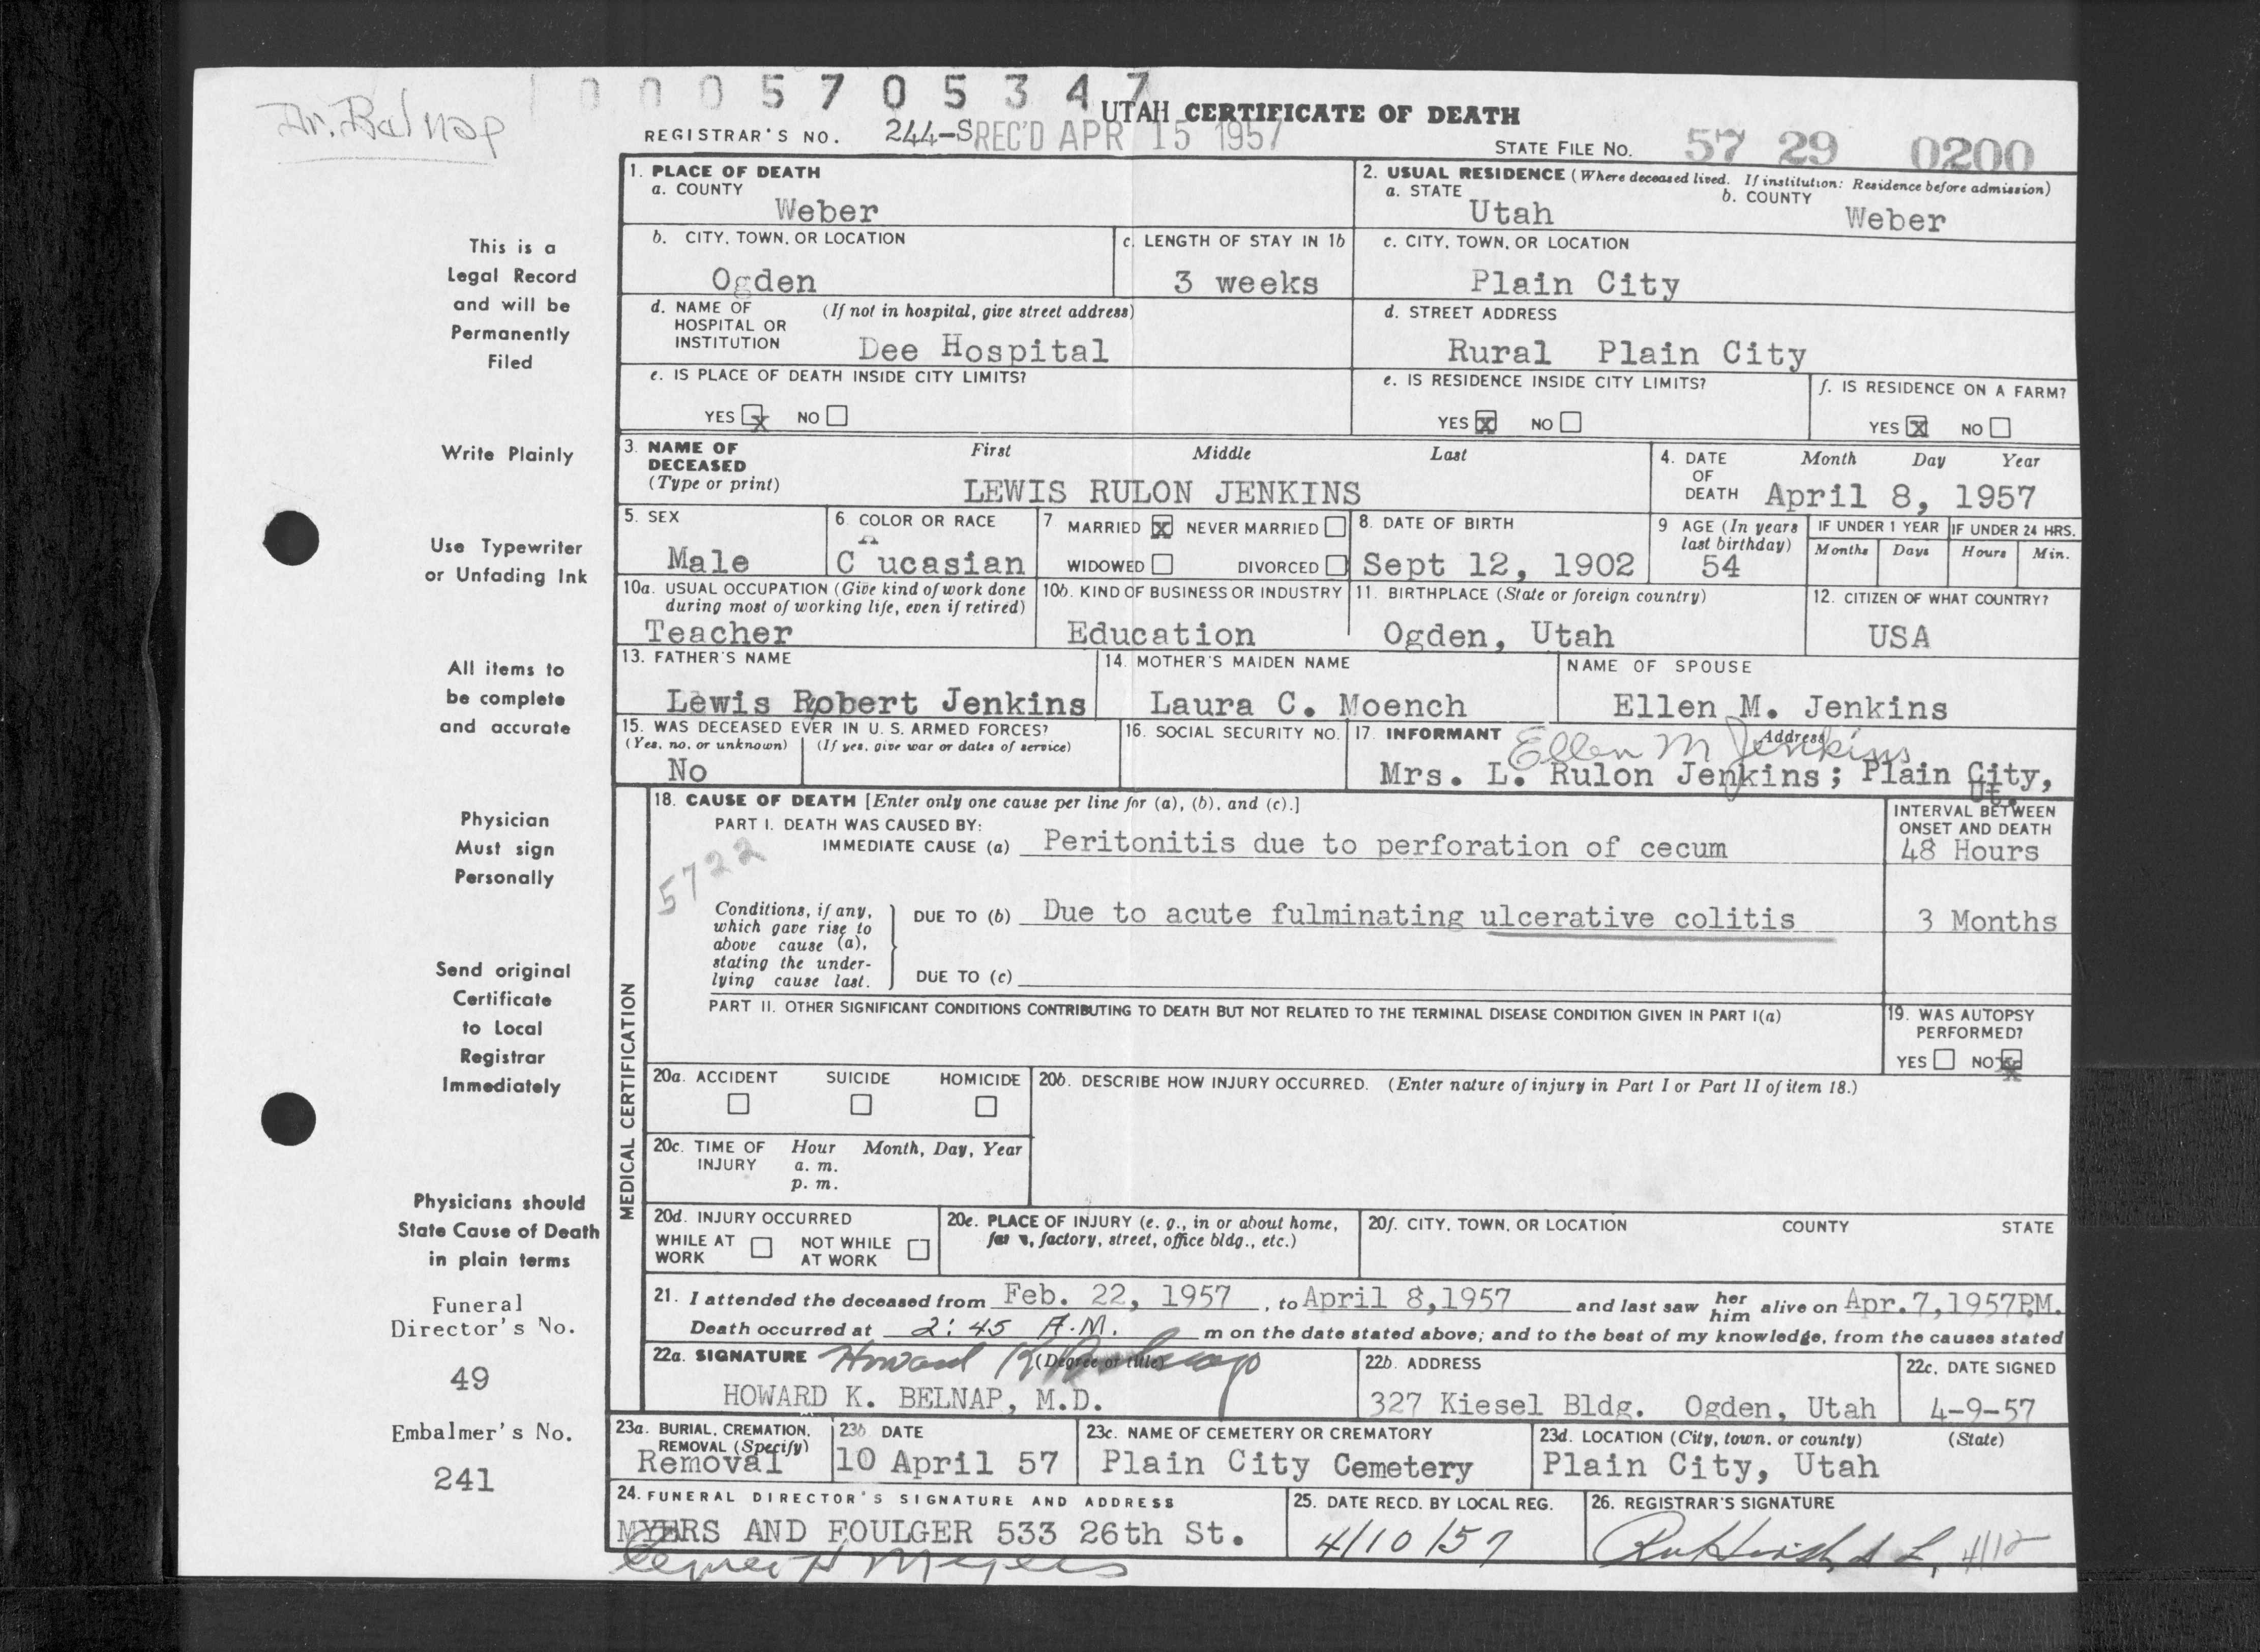 Dr. Balnap
0005705347
UTAH CERTIFICATE OF DEATH
REGISTRAR'S NO. 244-S REC'D APR 15 1957
STATE FILE NO. 57 29 0200
1. PLACE OF DEATH
a. COUNTY
Weber
2. USUAL RESIDENCE (Where deceased lived. If institution: Residence before admission)
a. STATE b. COUNTY
Utah Weber
b. CITY, TOWN, OR LOCATION
Ogden
c. LENGTH OF STAY IN 1b
3 weeks
c. CITY, TOWN, OR LOCATION
Plain City
d. NAME OF HOSPITAL OR INSTITUTION (If not in hospital, give street address)
Dee Hospital
d. STREET ADDRESS
Rural Plain City
e. IS PLACE OF DEATH INSIDE CITY LIMITS?
YES X NO
e. IS RESIDENCE INSIDE CITY LIMITS?
YES X NO
f. IS RESIDENCE ON A FARM?
YES X NO
3. NAME OF DECEASED (Type or print)
First Middle Last
LEWIS RULON JENKINS
4. DATE OF DEATH
Month Day Year
April 8, 1957
5. SEX
Male
6. COLOR OR RACE
Caucasian
7 MARRIED X NEVER MARRIED
WIDOWED DIVORCED
8. DATE OF BIRTH
Sept 12, 1902
9 AGE (In years last birthday)
54
IF UNDER 1 YEAR
Months Days
IF UNDER 24 HRS.
Hours Min.
10a. USUAL OCCUPATION (Give kind of work done during most of working life, even if retired)
Teacher
10b. KIND OF BUSINESS OR INDUSTRY
Education
11. BIRTHPLACE (State or foreign country)
Ogden, Utah
12. CITIZEN OF WHAT COUNTRY?
USA
13. FATHER'S NAME
Lewis Robert Jenkins
14. MOTHER'S MAIDEN NAME
Laura C. Moench
NAME OF SPOUSE
Ellen M. Jenkins
15. WAS DECEASED EVER IN U. S. ARMED FORCES?
(Yes, no, or unknown) (If yes, give war or dates of service)
No
16. SOCIAL SECURITY NO.
17. INFORMANT Address
Ellen M Jenkins
Mrs. L. Rulon Jenkins; Plain City,
Ut.
MEDICAL CERTIFICATION
18. CAUSE OF DEATH [Enter only one cause per line for (a), (b), and (c).]
INTERVAL BETWEEN ONSET AND DEATH
PART I. DEATH WAS CAUSED BY:
IMMEDIATE CAUSE (a) Peritonitis due to perforation of cecum
48 Hours
5722
Conditions, if any, which gave rise to above cause (a), stating the underlying cause last.
DUE TO (b) Due to acute fulminating ulcerative colitis
3 Months
DUE TO (c)
PART II. OTHER SIGNIFICANT CONDITIONS CONTRIBUTING TO DEATH BUT NOT RELATED TO THE TERMINAL DISEASE CONDITION GIVEN IN PART I(a)
19. WAS AUTOPSY PERFORMED?
YES NO X
20a. ACCIDENT SUICIDE HOMICIDE
20b. DESCRIBE HOW INJURY OCCURRED. (Enter nature of injury in Part I or Part II of item 18.)
20c. TIME OF INJURY
Hour Month, Day, Year
a. m.
p. m.
20d. INJURY OCCURRED
WHILE AT WORK NOT WHILE AT WORK
20e. PLACE OF INJURY (e. g., in or about home, farm, factory, street, office bldg., etc.)
20f. CITY, TOWN, OR LOCATION COUNTY STATE
21. I attended the deceased from Feb. 22, 1957, to April 8,1957 and last saw her him alive on Apr.7,1957P.M.
Death occurred at 2:45 A.M. m on the date stated above; and to the best of my knowledge, from the causes stated
22a. SIGNATURE (Degree or title)
Howard K Belnap
HOWARD K. BELNAP, M.D.
22b. ADDRESS
327 Kiesel Bldg. Ogden, Utah
22c. DATE SIGNED
4-9-57
23a. BURIAL, CREMATION, REMOVAL (Specify)
Removal
23b DATE
10 April 57
23c. NAME OF CEMETERY OR CREMATORY
Plain City Cemetery
23d. LOCATION (City, town, or county) (State)
Plain City, Utah
24. FUNERAL DIRECTOR'S SIGNATURE AND ADDRESS
MYERS AND FOULGER 533 26th St.
25. DATE RECD. BY LOCAL REG.
4/10/57
26. REGISTRAR'S SIGNATURE
4/12
This is a
Legal Record
and will be
Permanently
Filed
Write Plainly
Use Typewriter
or Unfading Ink
All items to
be complete
and accurate
Physician
Must sign
Personally
Send original
Certificate
to Local
Registrar
Immediately
Physicians should
State Cause of Death
in plain terms
Funeral
Director's No.
49
Embalmer's No.
241